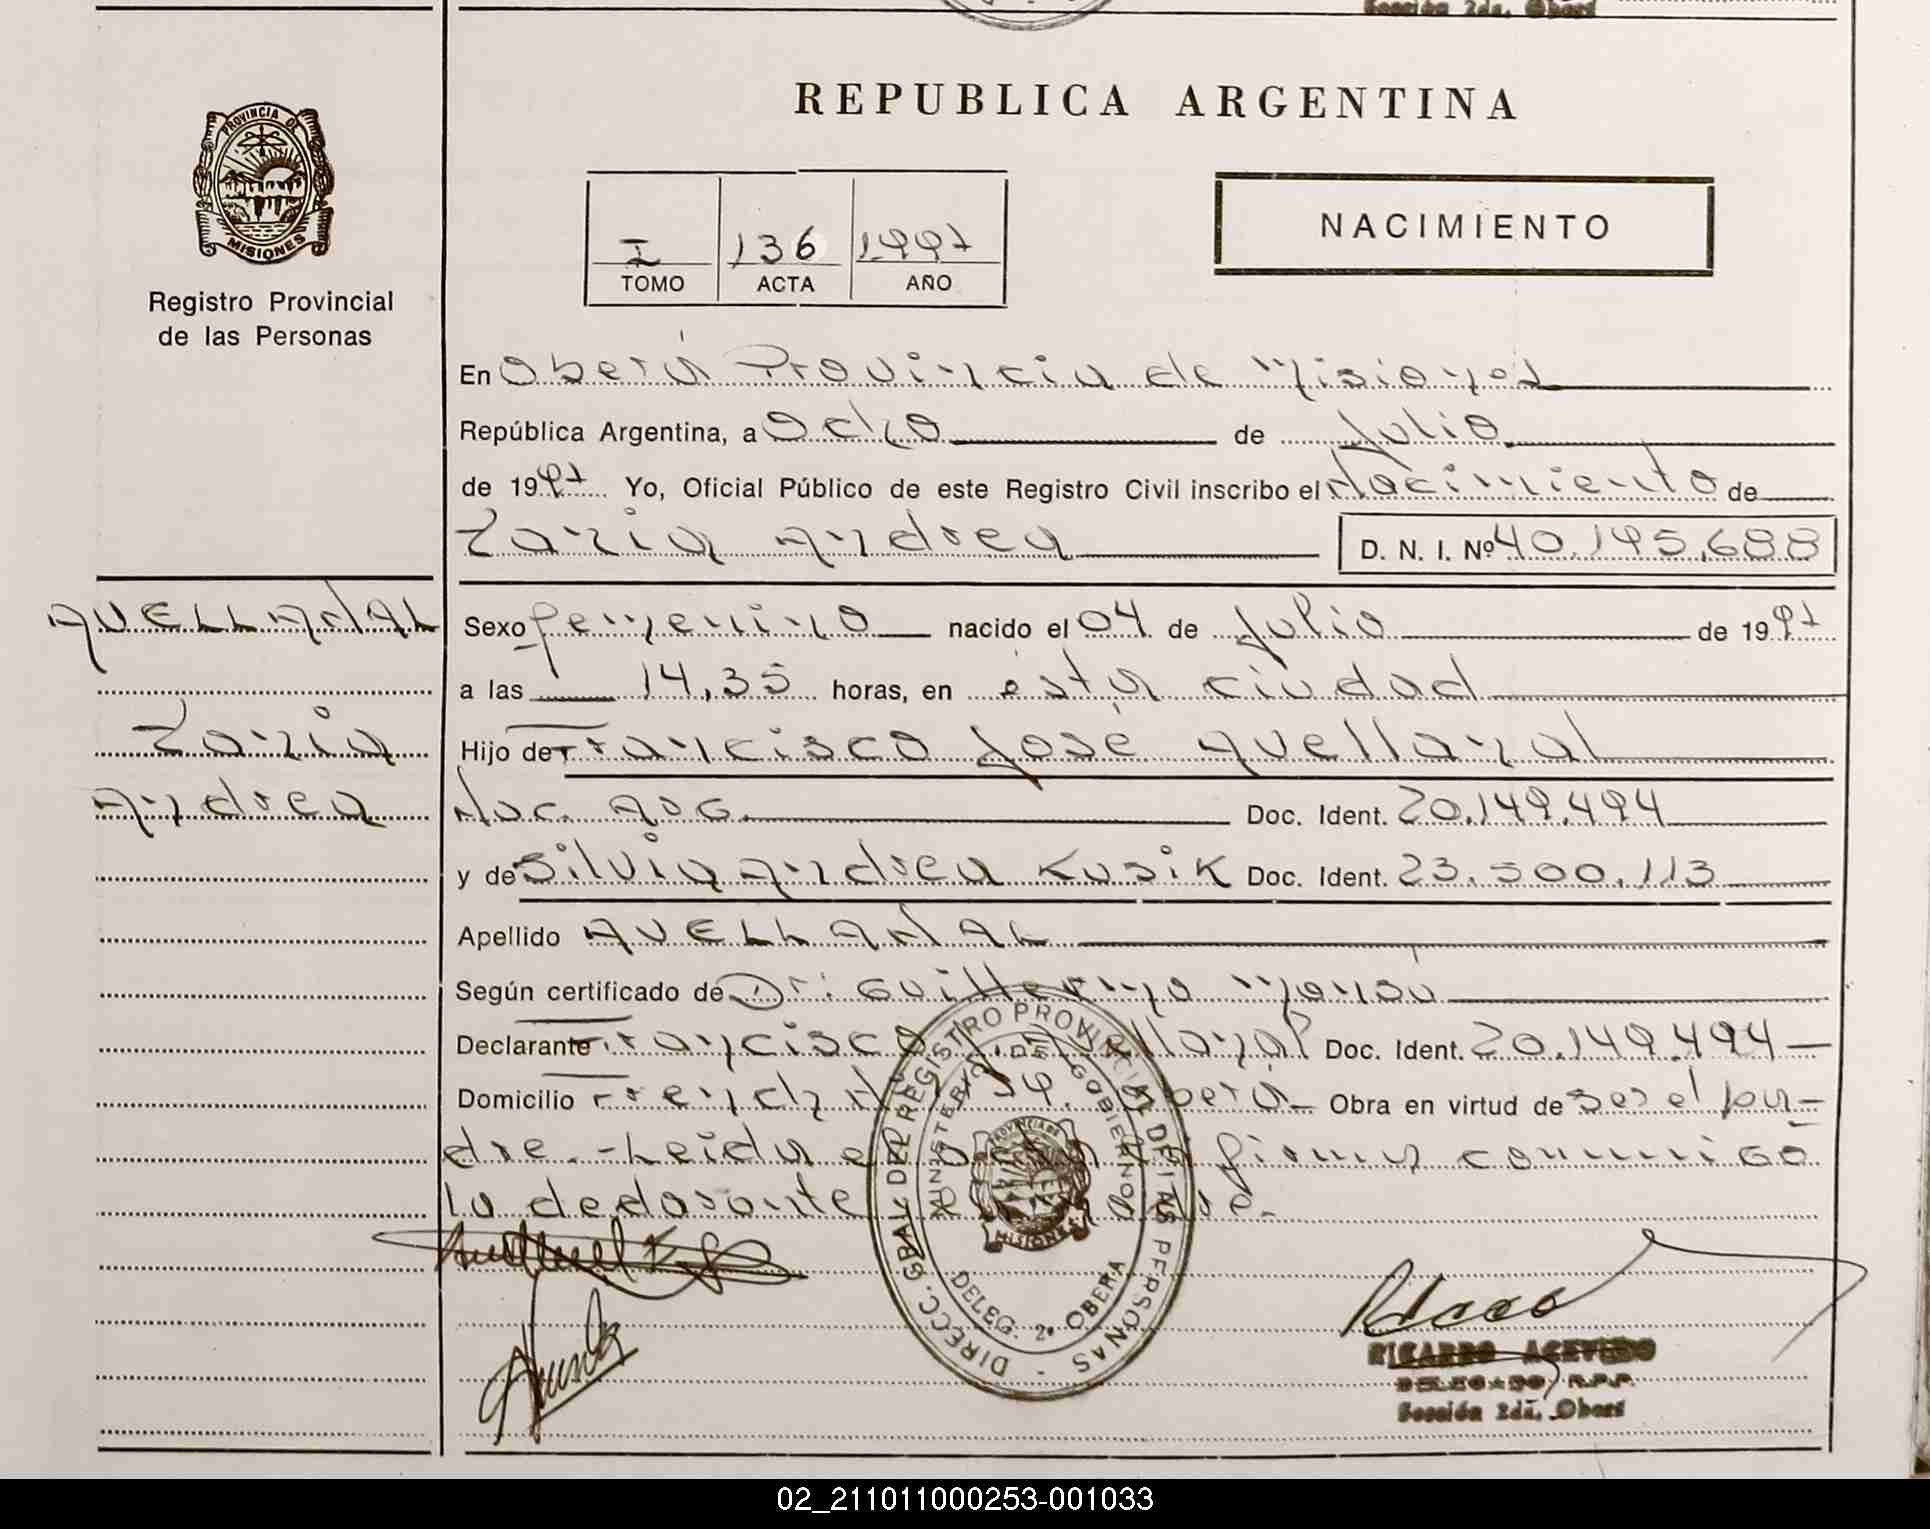 Sección 2da. Oberá
REPUBLICA ARGENTINA
PROVINCIA DE
MISIONES
Registro Provincial
de las Personas
I 136 1997
TOMO ACTA AÑO
NACIMIENTO
En Oberá Provincia de Misiones
República Argentina, a Ocho de Julio
de 1997 Yo, Oficial Público de este Registro Civil inscribo el Nacimiento de
Tania Andrea D. N. I. Nº 40.195.688
AVELLANAL
Tania
Andrea
Sexo femenino nacido el 04 de Julio de 1997
a las 14,35 horas, en ésta ciudad
Hijo de Francisco José Avellanal
Nac. Arg. Doc. Ident. 20.149.494
y de Silvia Andrea Kusik Doc. Ident. 23.500.113
Apellido AVELLANAL
Según certificado de Dr: Guillermo
Declarante Francisco J. Avellanal Doc. Ident. 20.149.494
Domicilio French Nº 59. Oberá Obra en virtud de ser el pa-
dre.- Leída el acta firma conmigo
la declarante
DIRECC. GRAL. DEL REGISTRO PROVINCIAL DE LAS PERSONAS
MINISTERIO DE GOBIERNO
PROVINCIA DE
MISIONES
DELEG. 2ª OBERA
RICARDO ACEVEDO
DELEGADO R.P.P.
Sección 2da. Oberá
02_211011000253-001033